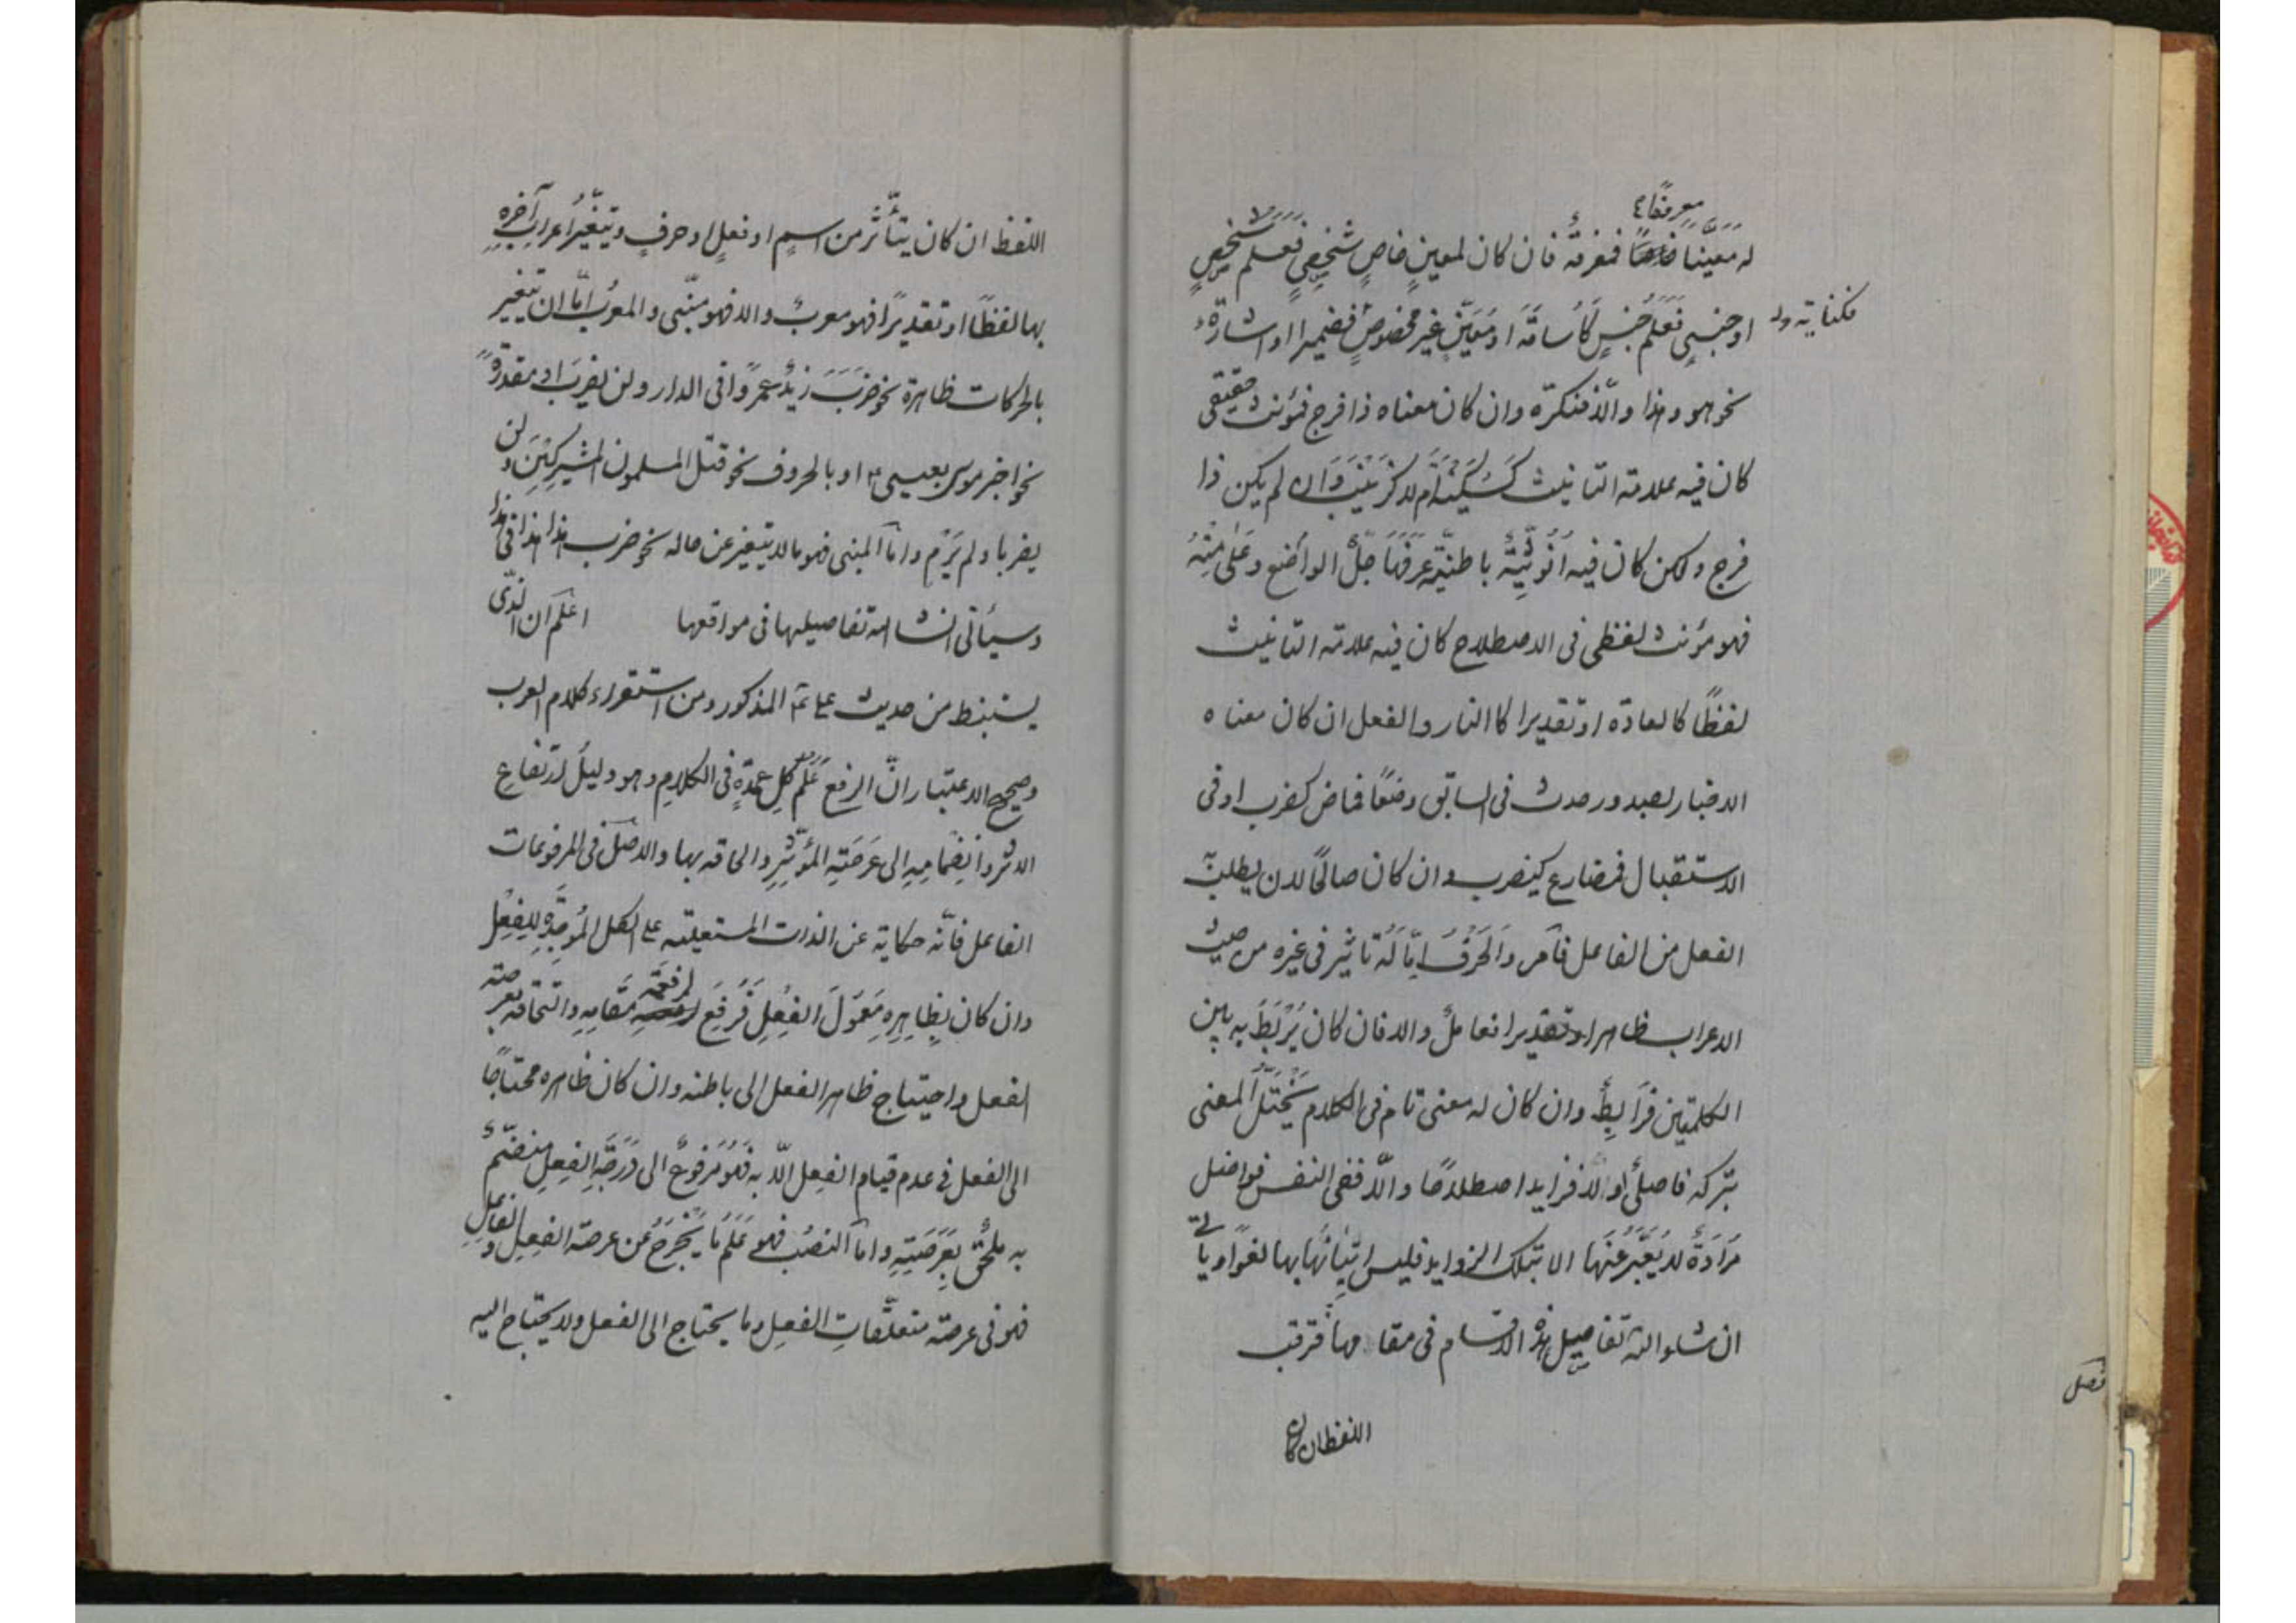 معرفا
له معينا خاصا فمعرفة فان كان لمعين خاص شخصي فعلم شخص
او جنسي فعلم جنس كأسامة او معين غير مخصوص فضميرا او اشارة
فكناية
نحو هو وهذا والّا فنكرة وان كان معناه ذا فرج فمؤنث حقيقي
كان فيه علامة التانيث كسكينة ام لا كزينب وان لم يكن ذا
فرج ولكن كان فيه انوثية باطنية عرفها جلّ الواضع وعلى
فهو مؤنث لفظي في الاصطلاح كان فيه علامة التانيث
لفظًا كالعادة او تقديرا كالنار والفعل ان كان معناه
الاخبار لصدور حدث في السابق وضعًا فماض كضرب او في
الاستقبال فمضارع كيضرب وان كان صالحًا لان يطلب به
الفعل من الفاعل فأمر والحرف امّا له تاثير في غيره من حيث
الاعراب ظاهرا او تقديرا فعاملٌ والا فان كان يُرْبَطُ به بين
الكلمتين فرابطٌ وان كان له معنى تام في الكلام يختلّ المعنى
بتركه فاصليٌ او الّا فزايد اصطلاحًا والّا ففي النفس فواضل
مرادة لا يعبّر عنها الا بتلك الزوايد فليس اتيانها بها لغوًا وياتي
ان شاء الله تفاصيل هذه الاقسام في مقامها فترقب
اللفظ ان كان
فصل
اللفظ ان كان يتأثّر من اسمٍ او فعلٍ او حرفٍ ويتغيّر اعراب آخره
بها لفظًا او تقديرًا فهو معربٌ والا فهو مبنّى والمعربُ امّا ان يتغير
بالحركات ظاهرة نحو ضرب زيدٌ عمرًوا في الدار ولن يضربَ او مقدرةً
نحو اخبر موسى بعيسى او بالحروف نحو قتل المسلمون المشركين ولن
يضربا ولم يَرْمِ وامّا المبنى فهو ما لا يتغير عن حاله نحو ضرب هذا هذا في هذا
وسيأتي انشاء الله تفاصيلها في مواقعها اعلم ان الذّى
يستنبط من حديث على المذكور ومن استقراء كلام العرب
وصحيح الاعتبار انّ الرفع عَلَمُ كلِ عمدةٍ في الكلام وهو دليلُ ارتفاع
الاثر وانضمامِه الى عَرصَتِه المؤثّرِ والحاقه بها والاصل في المرفوعات
الفاعل فانّه حكاية عن الذات المستعلية على الكل المُوجِدَةِ للفِعْل
وان كان بظاهره معمولَ الفِعْلِ فرُفِعَ لرفعة مقامِه والتحاقه بعرصة
الفعل واحتياج ظاهر الفعل الى باطنه وان كان ظاهره محتاجًا
الى الفعل في عدم قيام الفعل الّا به فهو مرفوعٌ الى درجةِ الفعل منضمٌ
به ملحقٌ بعَرَصَتِهِ وامّا النصبُ فهو عَلَمُ ما يَخْرجُ عن عرصة الفعل والفاعلِ
فهو في عرصة متعلّقاتِ الفعل وما يحتاج الى الفعل ولا يحتاج اليه